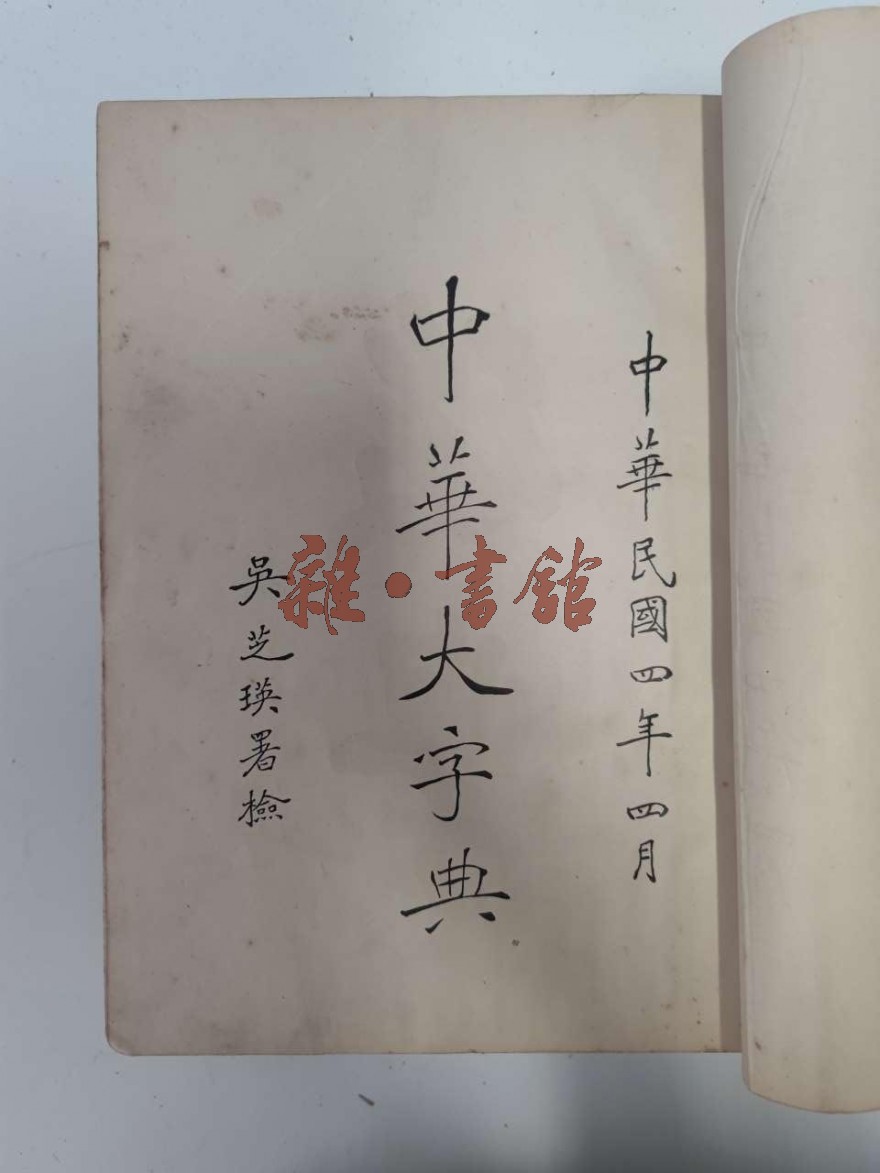 中華民國四年四月
中華大字典
吳芝瑛署檢
雜·書館